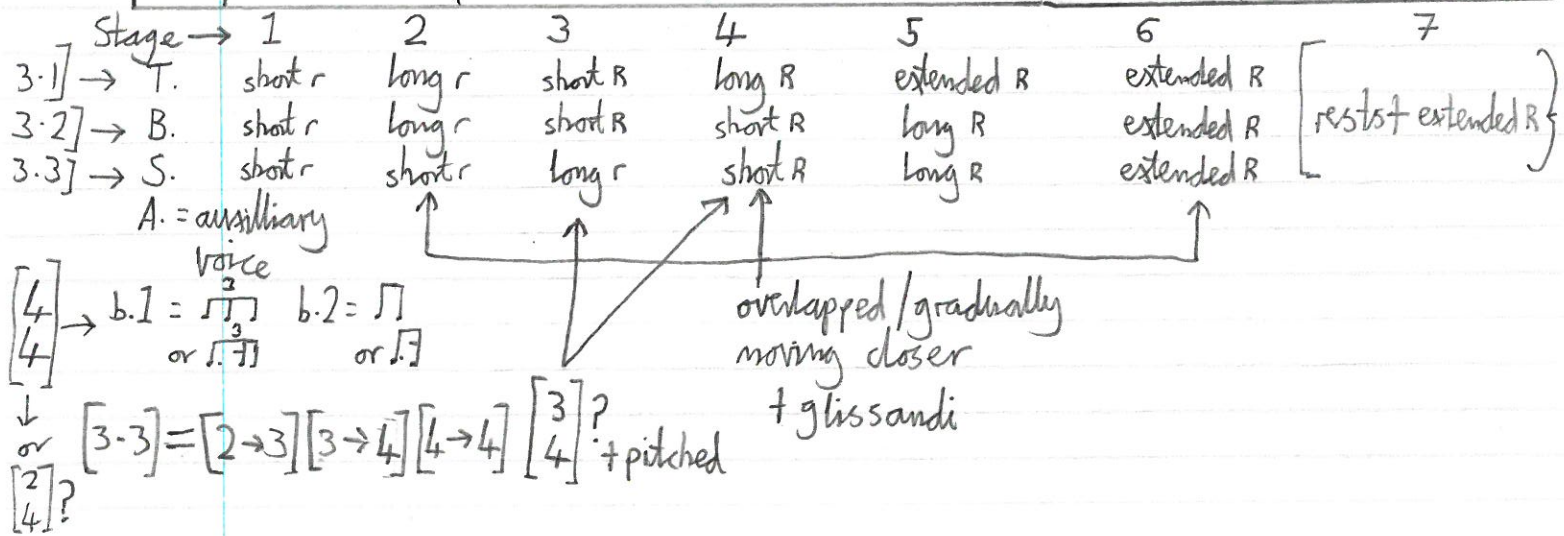 Stage → 1 2 3 4 5 6 7
3.1] → T. short r long r short R long R extended R extended R
3.2] → B. short r long r short R short R long R extended R [rests + extended R}
3.3] → S. short r short r long r short R long R extended R
A. = auxilliary
voice
[4 4] → b.1 = 3 b.2 =
or 3 or
overlapped/gradually
moving closer
+ glissandi
↓
or [3-3] = [2→3] [3→4] [4→4] [3 4]? + pitched
[2 4]?